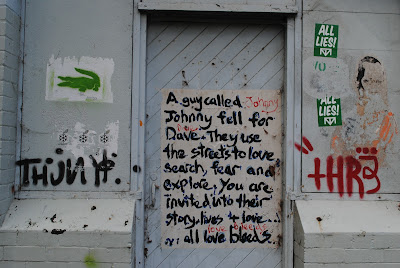 ALL
LIES!
ALL
LIES!
A guy called Johnny
Johnny fell for
Dave. They use
the streets to love
search, fear and
explore. You are
invited into their
story. lives & love...
love bleeds
all love bleeds.